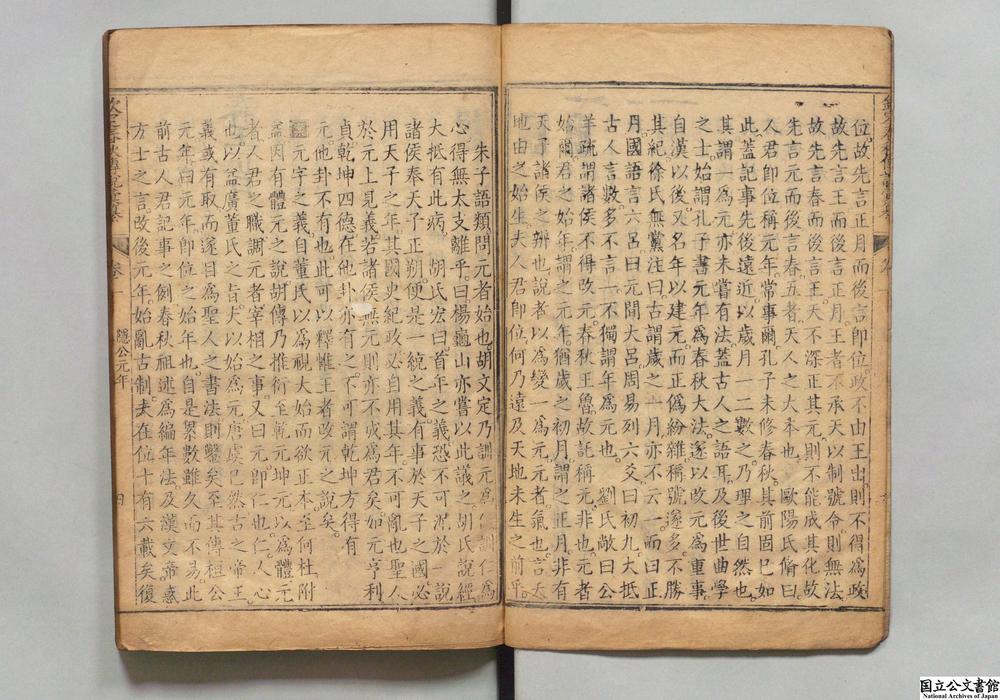 位故先言正月而後言即位政不由王出則不得爲政
故先言王而後言正月王者不承天以制號令則無法
故先言春而後言王天不深正其元則不能成其化故
先言元而後言春五者天人之大本也 歐陽氏脩曰
人君即位稱元年常事爾孔子未修春秋其前固已如
此蓋記事先後遠近以歲月一二數之乃理之自然也
其謂一爲元亦未嘗有法蓋古人之語耳及後世曲學
之士始謂孔子書元年爲春秋大法遂以改元爲重事
自漢以後又名年以建元而正僞紛雜稱號遂多不勝
其紀徐氏無黨注曰古謂歲之一月亦不云一而曰正
月國語言六呂曰元間大呂周易列六爻曰初九大抵
古人言數多不言一不獨謂年爲元也 劉氏敞曰公
羊疏謂諸侯不得改元春秋王魯故託稱元非也元者
始爾君之始年謂之元年猶歲之初月謂之正月非有
天子諸侯之辨也說者以爲變一爲元元者氣也言天
地由之始生夫人君即位何乃遠及天地未生之前乎
朱子語類問元者始也胡文定乃訓元爲仁訓仁爲
心得無太支離乎曰楊龜山亦嘗以此議之胡氏說經
大抵有此病 胡氏宏曰首年之義恐不可泥於一說
諸侯奉天子正朔便是一統之義有事於天子之國必
用天子之年其國史紀政必自用其年不可亂也聖人
於元上見義若諸侯無元則亦不成爲君矣如元亨利
貞乾坤四德在他卦亦有之不可謂乾坤方得有
元他卦不有也此可以釋惟王者改元之說矣
元字之義自董氏以爲視大始而欲正本至何杜附
益因有體元之說胡傳乃推衍至乾元坤元以爲體元
者人君之職調元者宰相之事又曰元即仁也仁人心
也以益廣董氏之旨夫以始爲元唐虞已然古之帝王
義或有取而遂目爲聖人之書法則鑿矣至其傳桓公
元年曰元年即位之始年也自是累數雖久而不易此
前古人君記事之例春秋祖述爲編年法及漢文帝惑
方士之言改後元年始亂古制夫在位十有六載矣復
卷一 隱公元年
四
国立公文書館
National Archives of Japan